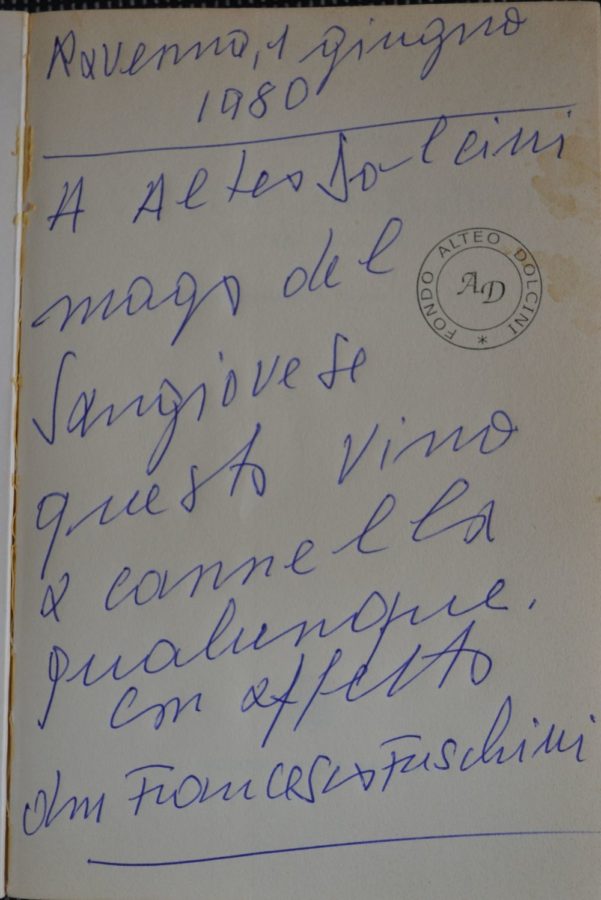 Ravenna, 1 giugno
1980
A Alteo Dolcini
mago del
Sangiovese
questo vino
a cannella
qualunque.
con affetto
don Francesco Fuschini
FONDO ALTEO DOLCINI *
AD